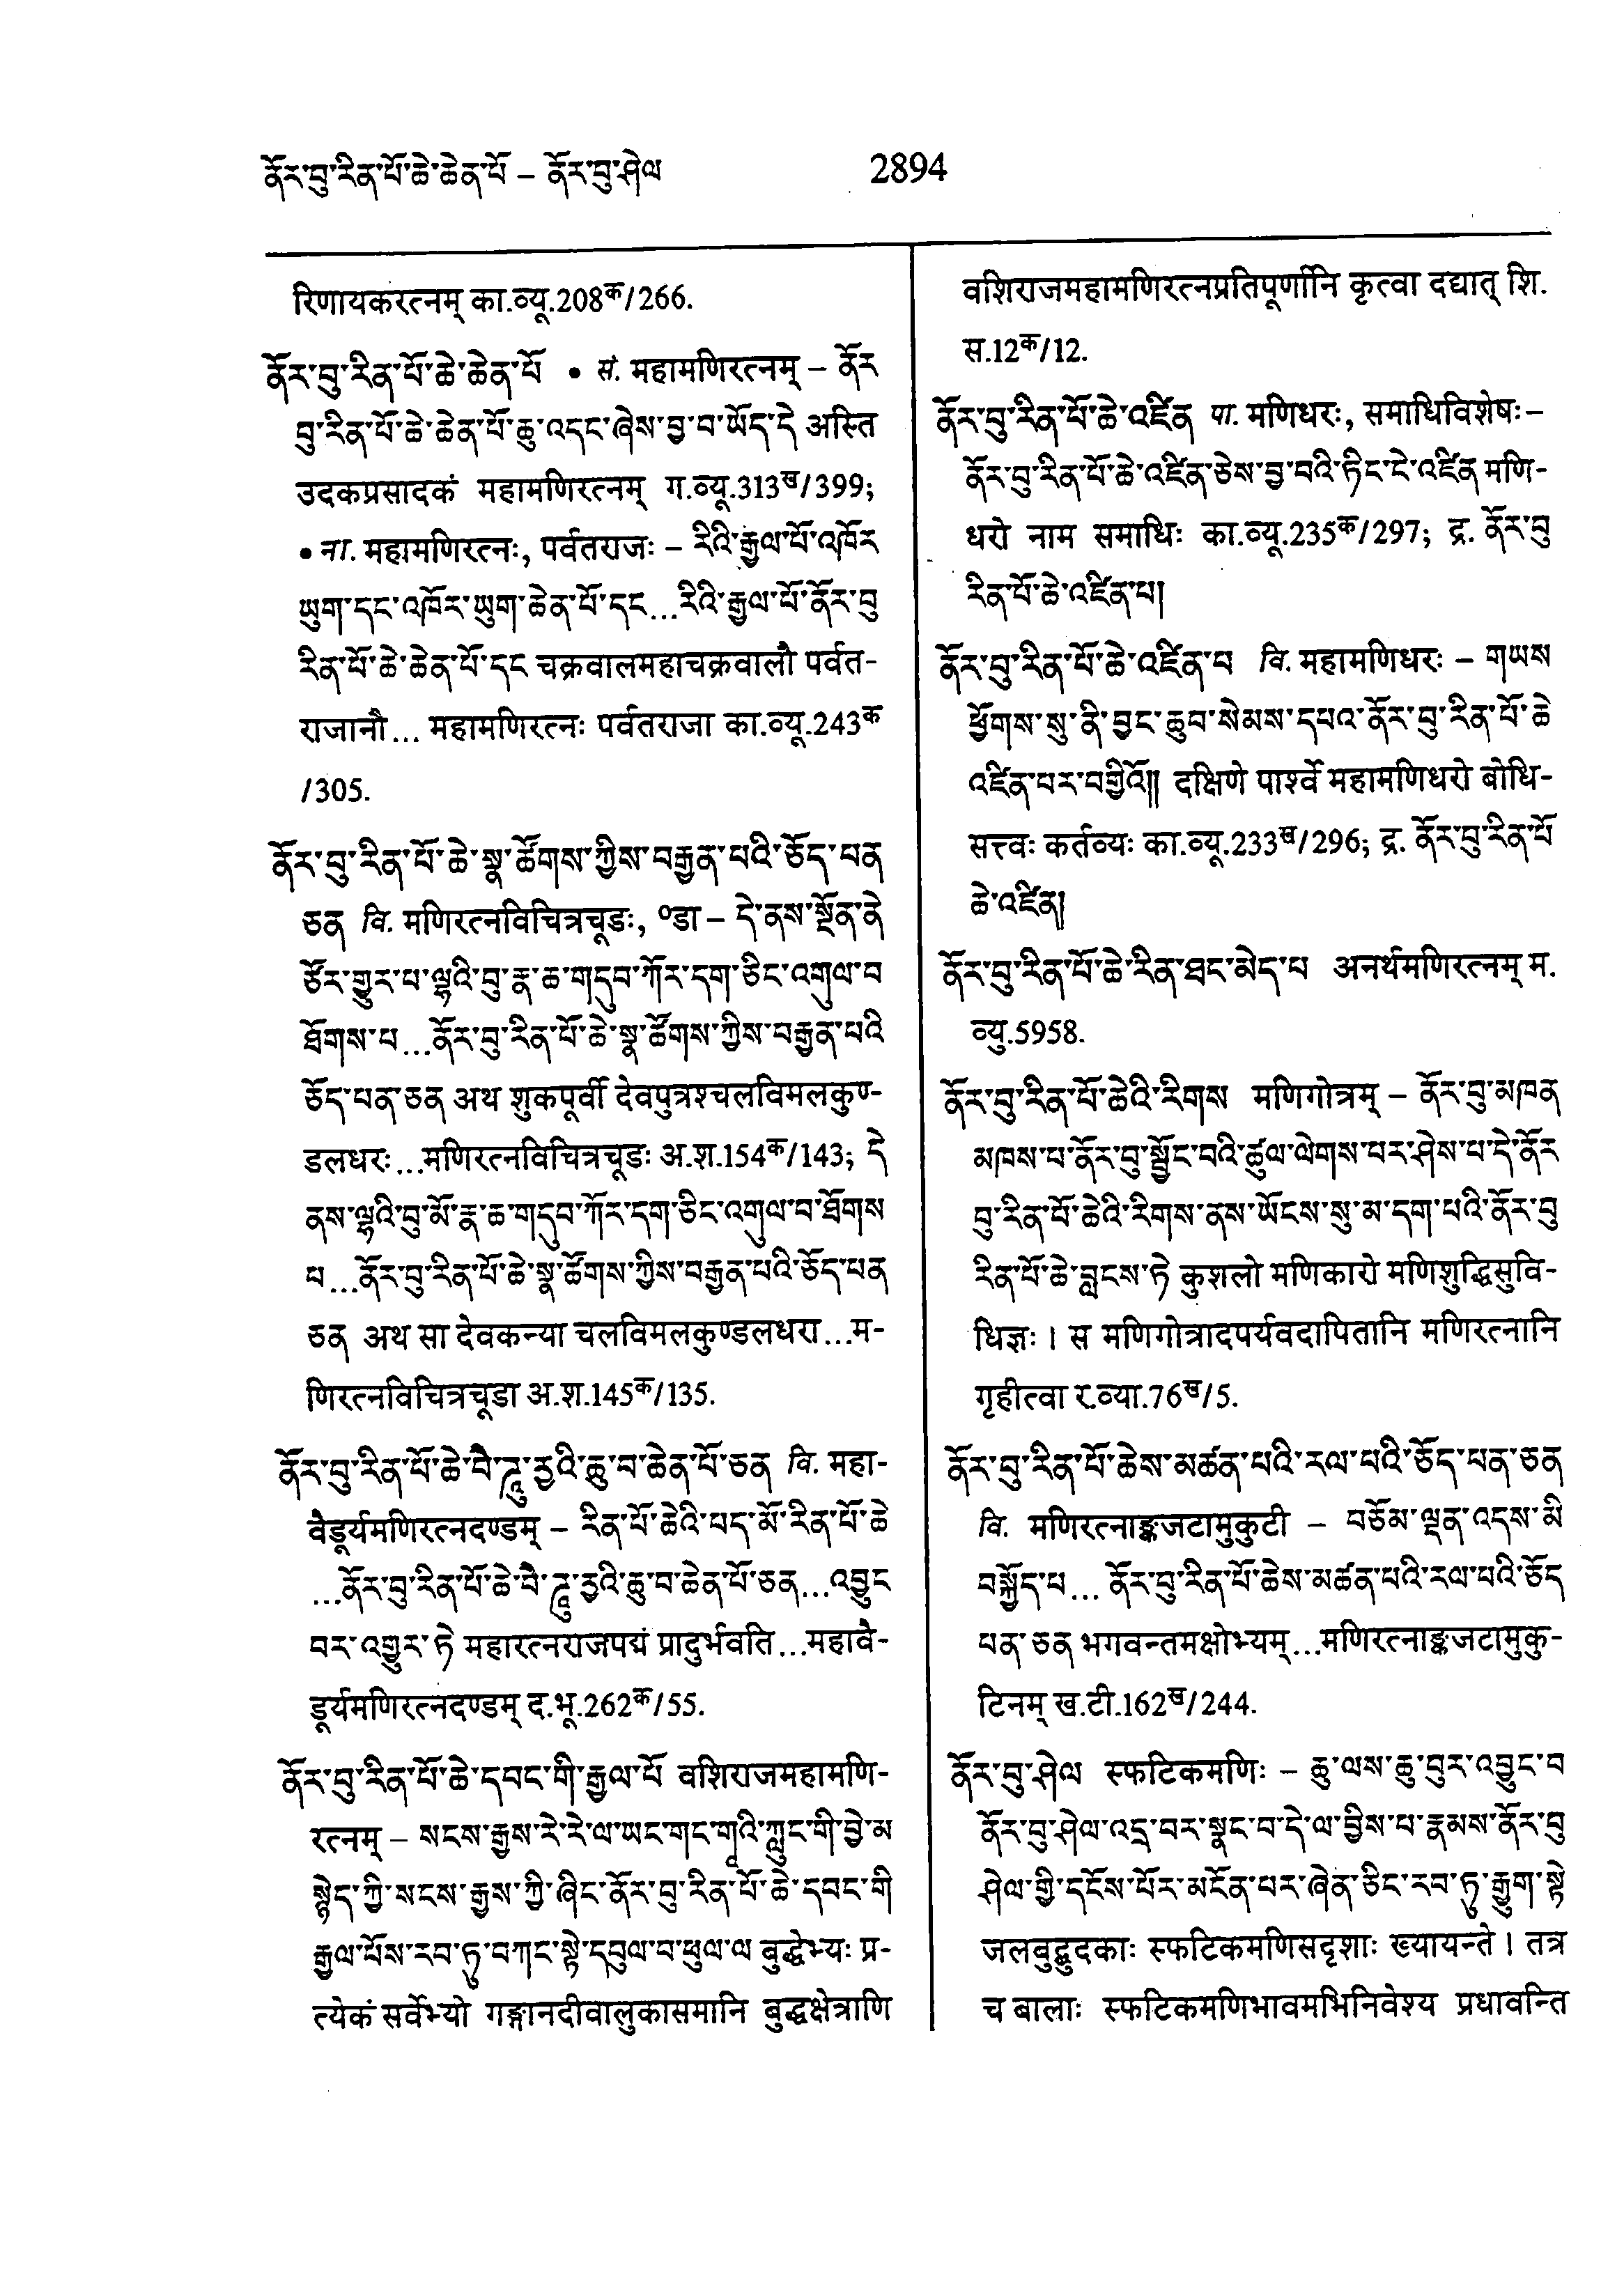 ནོར་བུ་རིན་པོ་ཆེ་ཆེན་པོ – ནོར་བུ་ཤེལ
2894
रिणायकरत्नम् का.व्यू.208क/266.
ནོར་བུ་རིན་པོ་ཆེ་ཆེན་པོ • सं. महामणिरत्नम् – ནོར
བུ་རིན་པོ་ཆེ་ཆེན་པོ་ཆུ་འདང་ཞེས་བྱ་བ་ཡོད་དེ अस्ति
उदकप्रसादकं महामणिरत्नम् ग.व्यू.313ख/399;
• ना. महामणिरत्नः, पर्वतराजः – རིའི་རྒྱལ་པོ་འཁོར
ཡུག་དང་འཁོར་ཡུག་ཆེན་པོ་དང...རིའི་རྒྱལ་པོ་ནོར་བུ
རིན་པོ་ཆེ་ཆེན་པོ་དང चक्रवालमहाचक्रवालौ पर्वत-
राजानौ... महामणिरत्नः पर्वतराजा का.व्यू.243क
/305.
ནོར་བུ་རིན་པོ་ཆེ་སྣ་ཚོགས་ཀྱིས་བརྒྱན་པའི་ཅོད་པན
ཅན वि. मणिरत्नविचित्रचूडः, ०डा – དེ་ནས་སྔོན་ནེ
ཙོར་གྱུར་པ་ལྷའི་བུ་རྣ་ཆ་གདུབ་ཀོར་དག་ཅིང་འགུལ་བ
ཐོགས་པ...ནོར་བུ་རིན་པོ་ཆེ་སྣ་ཚོགས་ཀྱིས་བརྒྱན་པའི
ཅོད་པན་ཅན अथ शुकपूर्वी देवपुत्रश्चलविमलकुण्-
डलधरः...मणिरत्नविचित्रचूडः अ.श.154क/143; དེ
ནས་ལྷའི་བུ་མོ་རྣ་ཆ་གདུབ་ཀོར་དག་ཅིང་འགུལ་བ་ཐོགས
པ...ནོར་བུ་རིན་པོ་ཆེ་སྣ་ཚོགས་ཀྱིས་བརྒྱན་པའི་ཅོད་པན
ཅན अथ सा देवकन्या चलविमलकुण्डलधरा...म-
णिरत्नविचित्रचूडा अ.श.145क/135.
ནོར་བུ་རིན་པོ་ཆེ་བཻ་ཌཱུ་རྱའི་ཆུ་བ་ཆེན་པོ་ཅན वि. महा-
वैडूर्यमणिरत्नदण्डम् – རིན་པོ་ཆེའི་པད་མོ་རིན་པོ་ཆེ
...ནོར་བུ་རིན་པོ་ཆེ་བཻ་ཌཱུ་རྱའི་ཆུ་བ་ཆེན་པོ་ཅན...འབྱུང
བར་འགྱུར་ཏེ महारत्नराजपद्मं प्रादुर्भवति...महावै-
डूर्यमणिरत्नदण्डम् द.भू.262क/55.
ནོར་བུ་རིན་པོ་ཆེ་དབང་གི་རྒྱལ་པོ वशिराजमहामणि-
रत्नम् – སངས་རྒྱས་རེ་རེ་ལ་ཡང་གང་གཱའི་ཀླུང་གི་བྱེ་མ
སྙེད་ཀྱི་སངས་རྒྱས་ཀྱི་ཞིང་ནོར་བུ་རིན་པོ་ཆེ་དབང་གི
རྒྱལ་པོས་རབ་ཏུ་བཀང་སྟེ་དབུལ་བ་ཕུལ་ལ बुद्धेभ्यः प्र-
त्येकं सर्वेभ्यो गङ्गानदीवालुकासमानि बुद्धक्षेत्राणि
वशिराजमहामणिरत्नप्रतिपूर्णानि कृत्वा दद्यात् शि.
स.12क/12.
ནོར་བུ་རིན་པོ་ཆེ་འཛིན पा. मणिधरः, समाधिविशेषः –
ནོར་བུ་རིན་པོ་ཆེ་འཛིན་ཅེས་བྱ་བའི་ཏིང་ངེ་འཛིན मणि-
धरो नाम समाधिः का.व्यू.235क/297; द्र. ནོར་བུ
རིན་པོ་ཆེ་འཛིན་པ།
ནོར་བུ་རིན་པོ་ཆེ་འཛིན་པ वि. महामणिधरः – གཡས
ཕྱོགས་སུ་ནི་བྱང་ཆུབ་སེམས་དཔའ་ནོར་བུ་རིན་པོ་ཆེ
འཛིན་པར་བགྱིའོ།། दक्षिणे पार्श्वे महामणिधरो बोधि-
सत्त्वः कर्तव्यः का.व्यू.233ख/296; द्र. ནོར་བུ་རིན་པོ
ཆེ་འཛིན།
ནོར་བུ་རིན་པོ་ཆེ་རིན་ཐང་མེད་པ अनर्थमणिरत्नम् म.
व्यु.5958.
ནོར་བུ་རིན་པོ་ཆེའི་རིགས मणिगोत्रम् – ནོར་བུ་མཁན
མཁས་པ་ནོར་བུ་སྦྱོང་བའི་ཚུལ་ལེགས་པར་ཤེས་པ་དེ་ནོར
བུ་རིན་པོ་ཆེའི་རིགས་ནས་ཡོངས་སུ་མ་དག་པའི་ནོར་བུ
རིན་པོ་ཆེ་བླངས་ཏེ कुशलो मणिकारो मणिशुद्धिसुवि-
धिज्ञः। स मणिगोत्रादपर्यवदापितानि मणिरत्नानि
गृहीत्वा र.व्या.76ख/5.
ནོར་བུ་རིན་པོ་ཆེས་མཚན་པའི་རལ་པའི་ཅོད་པན་ཅན
वि. मणिरत्नाङ्कजटामुकुटी – བཅོམ་ལྡན་འདས་མི
བསྐྱོད་པ... ནོར་བུ་རིན་པོ་ཆེས་མཚན་པའི་རལ་པའི་ཅོད
པན་ཅན भगवन्तमक्षोभ्यम्...मणिरत्नाङ्कजटामुकु-
टिनम् ख.टी.162ख/244.
ནོར་བུ་ཤེལ स्फटिकमणिः – ཆུ་ལས་ཆུ་བུར་འབྱུང་བ
ནོར་བུ་ཤེལ་འདྲ་བར་སྣང་བ་དེ་ལ་བྱིས་པ་རྣམས་ནོར་བུ
ཤེལ་གྱི་དངོས་པོར་མངོན་པར་ཞེན་ཅིང་རབ་ཏུ་རྒྱུག་སྟེ
जलबुद्बुदकाः स्फटिकमणिसदृशाः ख्यायन्ते। तत्र
च बालाः स्फटिकमणिभावमभिनिवेश्य प्रधावन्ति